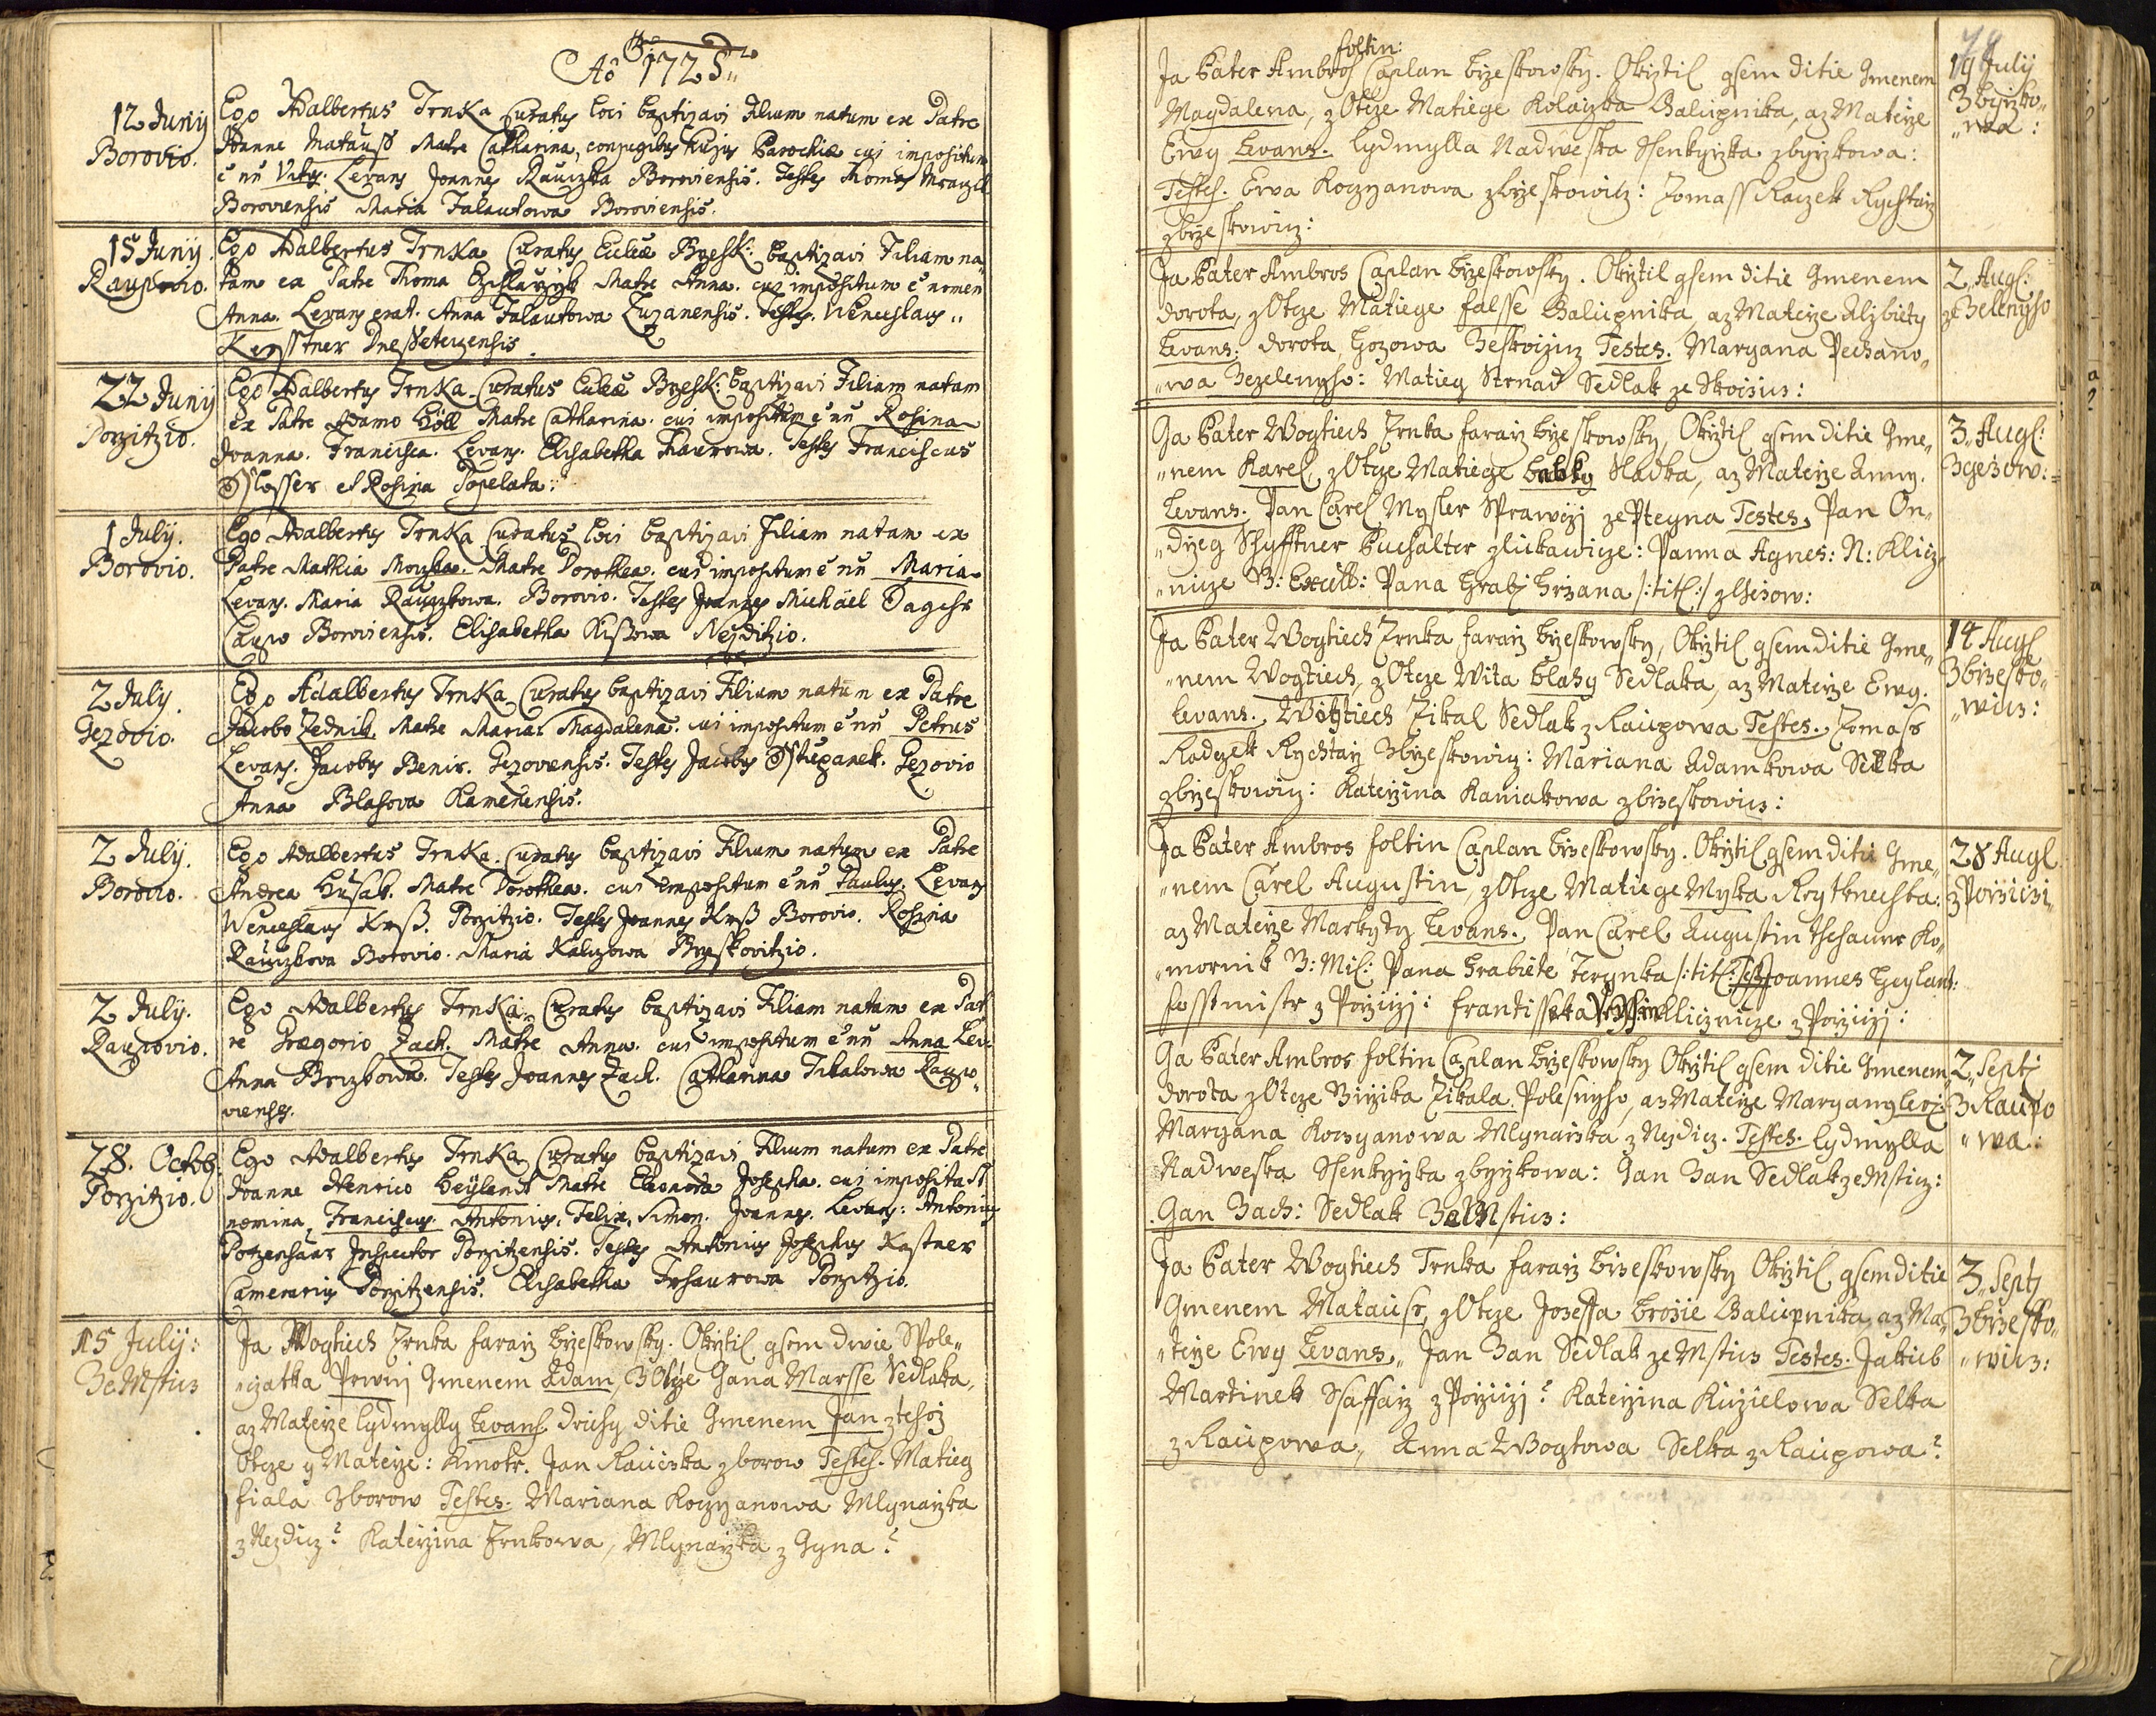 Aō 1725
12 Junÿ
Borovio.
Ego Adalbertus Trnka Curatus loci baptizavi Filium natum ex Patre
Joanne Matauss Matre Catharina, conjugibus hujus Parochiæ cui impositum
ē nn̄ Vitus. Levans Joannes Rauczka Boroviensis. Testes Thomas
Boroviensis Maria Falautowa Boroviensis.
15 Junÿ.
Raupovio.
Ego Adalbertus Trnka Curatus Eccliæ Brzesk: baptizavi Filiam na
tam ex Patre Thoma Matre Anna. cui impositum ē nomen
Anna. Levans erat. Anna Falautowa Zuzanensis. Testes. Wenceslaus
22 Junÿ
Porzitzio.
Ego Adalbertus Trnka Curatus Eccliæ Brzesk: baptizavi Filiam natam
ex Patre Adamo Höll Matre Catharina. cui impositum ē nn̄ Rosina
Joanna. Francisca. Levans. Elisabetha Testes Franciscus
Slosser et Rosina Topelata.
1 July.
Borovio.
Ego Adalbertus Trnka Curatus loci baptizavi Filiam natam ex
Patre Mathia Mouska. Matre Dorothea. cui impositum ē nn̄ Maria.
Levans. Maria Rauczkowa. Borovio. Testes Joannes Michäel
Boroviensis. Elisabetha Nezditzio.
2 July.
Gezovio.
Ego Adalbertus Trnka Curatus baptizavi Filium natum ex Patre
Jacobo Zednik. Matre Maria Magdalena. cui impositum ē nn̄ Petrus
Levans. Jacobus Benis. Gezovensis. Testes Jacobus Sstiepanek. Gezovio
Anna Blahova Kamenensis.
2 July.
Borovio.
Ego Adalbertus Trnka. Curatus baptizavi Filium natum ex Patre
Andrea Husak. Matre Dorothea. cui impositum ē nn̄ Paulus. Levans
Wenceslaus Krß. Porzitzio. Testes Joannes Krß Borovio. Rosina
Rauczkova Borovio. Maria Kaluzowa Brzeskovitzio.
2 July.
Raupovio.
Ego Adalbertus Trnka. Curatus baptizavi Filiam natam ex Pat
re Gregorio Zach. Matre Anna. cui impositum ē nn̄ Anna Lev:
Anna Brizkowa. Testes Joannes Zach. Catharina Tikalowa Raupo
vienses.
28. Octob.
Porzitzio.
Ego Adalbertus Trnka Curatus baptizavi Filium natum ex Patre
Joanne Henrico Heÿlandt Matre Eleonora Josepha. cui imposita st̄
nomina Franciscus. Antonius, Felix, Simon. Joannes. Levans: Antonius
Inspector Porzitzensis. Testes Antonius Josephus Kastner
Camerarius Porzitzensis. Elisabetha Porzitzio.
15 July:
Ze Msticz
Ja Wogtiech Trnka fararz brzeskowsky. Okrztil gsem dwie Spole„
„czatka Prwnj Gmenem Adam, Z Otcze Gana Marsse Sedlaka,
az Materze lydmylly Levans. druhy ditie Gmenem Jan z tehoz
Otcze y Materze: Kmotr. Jan Raucska z borow Testes. Matieg
fiala Zborow Testes. Mariana Koczyanowa Mlynarzka
z Nezdicz: Katerzina Trnkowa, Mlynarzka z Gyna:
19 July
Zbyrzko„
„wa:
foltin:
Ja Pater Ambros Caplan brzeskowsky. Okrztil gsem ditie Gmenem
Magdalena, z Otcze Matiege Kolarzka Chalupnika, az Materze
Ewy Levans. lydmylla Nadweska Ssenkyrzka zbyrzkowa:
Testes. Ewa Koczyanowa zbrzeskowicz: Tomass Raczek Rychtarz
zbrzeskowicz:
2 Augl:
ze Zelenyho
Ja Pater Ambros Caplan brzeskowsky. Okrztil gsem ditie Gmenem
dorota, z Otcze Matiege falsse Chalupnika, az Materze Alzbiety
Levans. dorota Hozowa Testes. Maryana Pechano„
„wa Zezelenyho: Matieg Strnad Sedlak ze Skocicz:
3 Augl:
Zgezow:
Ga Pater Wogtiech Trnka faraiz brzeskowsky, Okrztil gsem ditie Gme„
„nem Karel, z Otcze Matiege babky Sladka, az Materze Anny.
Levans. Pan Carel Mysler Sprawczj ze Pteyna Testes, Pan On„
„drzeg Schyfftner Buchalter z lukawicze: Panna Agnes: N: Klicz„
„nicze B: Excell: Pana Hrabj Hrzana /:titl:/ z Gezow:
14 Augl
Zbrzesko„
„wicz:
Ja Pater Wogtiech Trnka faraiz brzeskowsky, Okrztil gsem ditie Gme„
„nem Wogtiech, z Otcze Wita blahy Sedlaka, az Materze Ewy.
Levans. Wogtiech Tikal Sedlak z Raupowa Testes. Tomass
Radczek Rychtarz Zbrzeskowicz: Mariana Adamkowa Selka
zbrzeskowicz: Katerzina Kaniakowa zbrzeskowicz:
28 Augl.
z Porziczi„
Ja Pater Ambros foltin Caplan brzeskowsky. Okrztil gsem ditie Gme„
„nem Carel Augustin, z Otcze Matiege Myka Reytknechta:
az Materze Markyty Levans. Pan Carel Augustin thesaurr Ko„
„mornik B: Mil: Pana Hrabiete Czernka /:titl: Joannes Heylant:
fosstmistr z Porziczj: frantisska klicznicze z Porziczj:
2 Septj
Z Raupo
„wa:
Ga Pater Ambros foltin Caplan brzeskowsky Okrztil gsem ditie Gmenem
dorota z Otcze Girzika Tikala Polesnyho, az Materze Maryany Levj:
Maryana Koczyanowa Mlynarzka z Nezdicz. Testes. lydmylla
Nadweska Ssenkyrzka zbyrzkowa: Jan Zan Sedlak ze Msticz:
Gan Zach: Sedlak Ze Msticz:
3 Septj
Zbrzesko„
„wicz:
Ja Pater Wogtiech Trnka faraiz brzeskowsky Okrztil gsem ditie
Gmenem Matauss, z Otcze Joseffa brozie Chalupnika, az Ma„
„terze Ewy Levans„ Jan Zan Sedlak ze Msticz Testes. Jakub
Martinek Ssaffarz z Porziczj: Katerzina Kuzielowa Selka
z Raupowa„ Anna Wogtowa Selka z Raupowa: